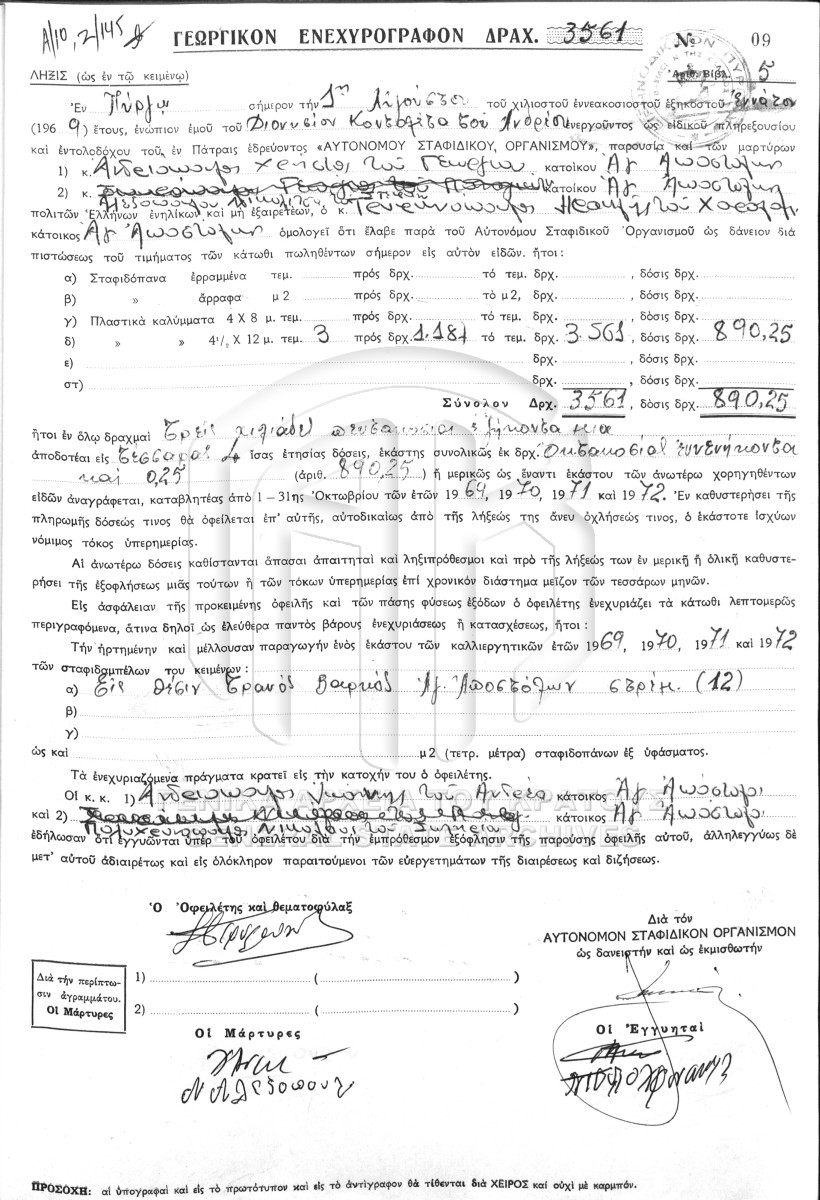 Α/10, 2/145
ΓΕΩΡΓΙΚΟΝ ΕΝΕΧΥΡΟΓΡΑΦΟΝ ΔΡΑΧ. 3561 № 09
ΛΗΞΙΣ (ὡς ἐν τῷ κειμένῳ) Ἀριθ. Βιβλ. 5
Ἐν Πύργῳ σήμερον τὴν 1ην Αὐγούστου τοῦ χιλιοστοῦ ἐννεακοσιοστοῦ ἑξηκοστοῦ ἐννάτου
(196 9) ἔτους, ἐνώπιον ἐμοῦ τοῦ Διονυσίου τοῦ Ἀνδρέου ἐνεργοῦντος ὡς εἰδικοῦ πληρεξουσίου
καὶ ἐντολοδόχου τοῦ ἐν Πάτραις ἑδρεύοντος «ΑΥΤΟΝΟΜΟΥ ΣΤΑΦΙΔΙΚΟΥ, ΟΡΓΑΝΙΣΜΟΥ», παρουσίᾳ καὶ τῶν μαρτύρων
1) κ. Ἀνδριόπουλος Χρῆστος τοῦ Γεωργίου κατοίκου Ἁγ. Ἀποστόλων
2) κ. κατοίκου Ἁγ. Ἀποστόλων
Ἀλεξόπουλος Νικόλαος τοῦ
πολιτῶν Ἑλλήνων ἐνηλίκων καὶ μὴ ἐξαιρετέων, ὁ κ. τοῦ
κάτοικος Ἁγ. Ἀποστόλων ὁμολογεῖ ὅτι ἔλαβε παρὰ τοῦ Αὐτονόμου Σταφιδικοῦ Ὀργανισμοῦ ὡς δάνειον διὰ
πιστώσεως τοῦ τιμήματος τῶν κάτωθι πωληθέντων σήμερον εἰς αὐτὸν εἰδῶν. ἤτοι :
α) Σταφιδόπανα ἐρραμμένα τεμ. πρός δρχ. τό τεμ. δρχ. , δόσις δρχ.
β) » ἄρραφα μ2 πρός δρχ. τὸ μ2, δρχ. , δόσις δρχ.
γ) Πλαστικὰ καλύμματα 4 Χ 8 μ. τεμ. πρὸς δρχ. τὸ τεμ. δρχ. , δόσις δρχ.
δ) » » 4¹/₂ Χ 12 μ. τεμ. 3 πρὸς δρχ. 1.187 τό τεμ. δρχ. 3.561 , δόσις δρχ. 890,25
ε) δρχ. , δόσις δρχ.
στ) δρχ. , δόσις δρχ.
Σύνολον Δρχ. 3561 , δόσις δρχ. 890,25
ἤτοι ἐν ὅλῳ δραχμαὶ Τρεῖς χιλιάδες πεντακόσιαι ἑξήκοντα μία
ἀποδοτέαι εἰς τέσσαρας 4 ἴσας ἐτησίας δόσεις, ἑκάστης συνολικῶς ἐκ δρχ. Ὀκτακοσίαι ἐννενήκοντα
καὶ 0,25 (ἀριθ. 890,25) ἤ μερικῶς ὡς ἔναντι ἑκάστου τῶν ἀνωτέρω χορηγηθέντων
εἰδῶν ἀναγράφεται, καταβλητέας ἀπὸ 1 – 31ης Ὀκτωβρίου τῶν ἐτῶν 1969, 1970, 1971 καὶ 1972. Ἐν καθυστερήσει τῆς
πληρωμῆς δόσεώς τινος θὰ ὀφείλεται ἐπ' αὐτῆς, αὐτοδικαίως ἀπὸ τῆς λήξεώς της ἄνευ ὀχλήσεώς τινος, ὁ ἑκάστοτε ἰσχύων
νόμιμος τόκος ὑπερημερίας.
Αἱ ἀνωτέρω δόσεις καθίστανται ἅπασαι ἀπαιτηταὶ καὶ ληξιπρόθεσμοι καὶ πρὸ τῆς λήξεώς των ἐν μερικῇ ἤ ὁλικῇ καθυστε-
ρήσει τῆς ἐξοφλήσεως μιᾶς τούτων ἤ τῶν τόκων ὑπερημερίας ἐπὶ χρονικὸν διάστημα μεῖζον τῶν τεσσάρων μηνῶν.
Εἰς ἀσφάλειαν τῆς προκειμένης ὀφειλῆς καὶ τῶν πάσης φύσεως ἐξόδων ὁ ὀφειλέτης ἐνεχυριάζει τὰ κάτωθι λεπτομερῶς
περιγραφόμενα, ἅτινα δηλοῖ ὡς ἐλεύθερα παντὸς βάρους ἐνεχυριάσεως ἤ κατασχέσεως, ἤτοι :
Τὴν ἠρτημένην καὶ μέλλουσαν παραγωγὴν ἑνὸς ἑκάστου τῶν καλλιεργητικῶν ἐτῶν 1969, 1970, 1971 καὶ 1972
τῶν σταφιδαμπέλων του κειμένων :
α) Εἰς θέσιν Τρανὸς Βαρκὸς Ἁγ. Ἀποστόλων στρέμ. (12)
β)
γ)
ὡς καὶ μ2 (τετρ. μέτρα) σταφιδοπάνων ἐξ ὑφάσματος.
Τὰ ἐνεχυριαζόμενα πράγματα κρατεῖ εἰς τὴν κατοχήν του ὁ ὀφειλέτης.
Οἱ κ. κ. 1) Ἀνδριόπουλος τοῦ Ἀνδρέα κάτοικος Ἁγ. Ἀποστόλων
ΓΕΝΙΚΑ ΑΡΧΕΙΑ ΤΟΥ ΚΡΑΤΟΥΣ
καὶ 2) κάτοικος Ἁγ. Ἀποστόλων
Πολυχρονόπουλος Νικόλαος τοῦ
GENERAL STATE ARCHIVES
ἐδήλωσαν ὅτι ἐγγυῶνται ὑπὲρ τοῦ ὀφειλέτου διὰ τὴν ἐμπρόθεσμον ἐξόφλησιν τῆς παρούσης ὀφειλῆς αὐτοῦ, ἀλληλεγγύως δὲ
μετ' αὐτοῦ ἀδιαιρέτως καὶ εἰς ὁλόκληρον παραιτούμενοι τῶν εὐεργετημάτων τῆς διαιρέσεως καὶ διζήσεως.
Ὁ Ὀφειλέτης καὶ θεματοφύλαξ
Διὰ τόν
ΑΥΤΟΝΟΜΟΝ ΣΤΑΦΙΔΙΚΟΝ ΟΡΓΑΝΙΣΜΟΝ
ὡς δανειστὴν καὶ ὡς ἐκμισθωτήν
Διὰ τὴν περίπτω-
σιν ἀγραμμάτου.
Οἱ Μάρτυρες
1) ( )
2) ( )
Οἱ Μάρτυρες
Οἱ Ἐγγυηταὶ
Ν Αλεξόπουλ
ΠΡΟΣΟΧΗ: αἱ ὑπογραφαὶ καὶ εἰς τὸ πρωτότυπον καὶ εἰς τὸ ἀντίγραφον θὰ τίθενται διὰ ΧΕΙΡΟΣ καὶ οὐχὶ μὲ καρμπόν.